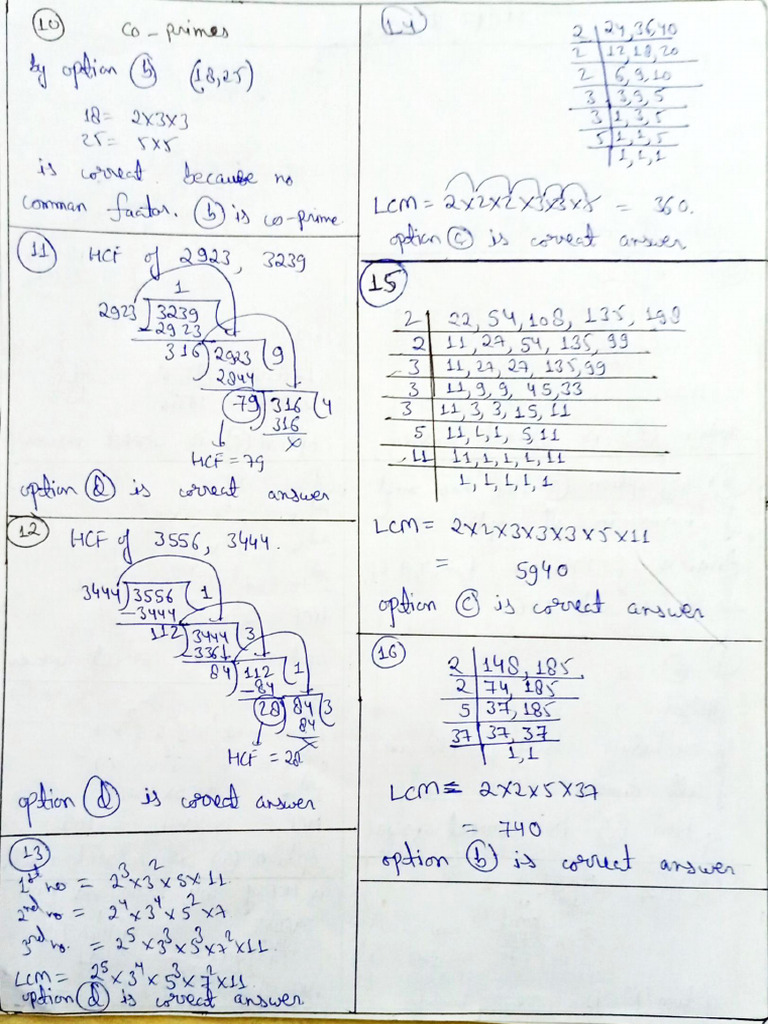 10 co-primes
by option (b) (18,25)
18= 2×3×3
25= 5×5
is correct because no
comman factor. (b) is co-prime
11 HCF of 2923, 3239
1
2923)3239
-2923
316)2923(9
2844
79)316(4
316
×
HCF=79
option (d) is correct answer
12 HCF of 3556, 3444.
3444)3556(1
-3444
112)3444(3
-3361
84)112(1
-84
28)84(3
84
×
HCF = 28
option (d) is correct answer
13
1st no = 2³×3²×5×11
2nd no = 2⁴×3⁴×5²×7
3rd no. = 2⁵×3³×5³×7²×11
LCM= 2⁵×3⁴×5³×7²×11
option (d) is correct answer
14
2 24, 36, 40
2 12, 18, 20
2 6, 9, 10
3 3, 9, 5
3 1, 3, 5
5 1, 1, 5
1, 1, 1
LCM= 2×2×2×3×3×5 = 360.
option (c) is correct answer
15
2 22, 54, 108, 135, 198
2 11, 27, 54, 135, 99
3 11, 27, 27, 135, 99
3 11, 9, 9, 45, 33
3 11, 3, 3, 15, 11
5 11, 1, 1, 5, 11
11 11, 1, 1, 1, 11
1, 1, 1, 1, 1
LCM= 2×2×3×3×3×5×11
= 5940
option (c) is correct answer
16
2 148, 185
2 74, 185
5 37, 185
37 37, 37
1, 1
LCM= 2×2×5×37
= 740
option (b) is correct answer